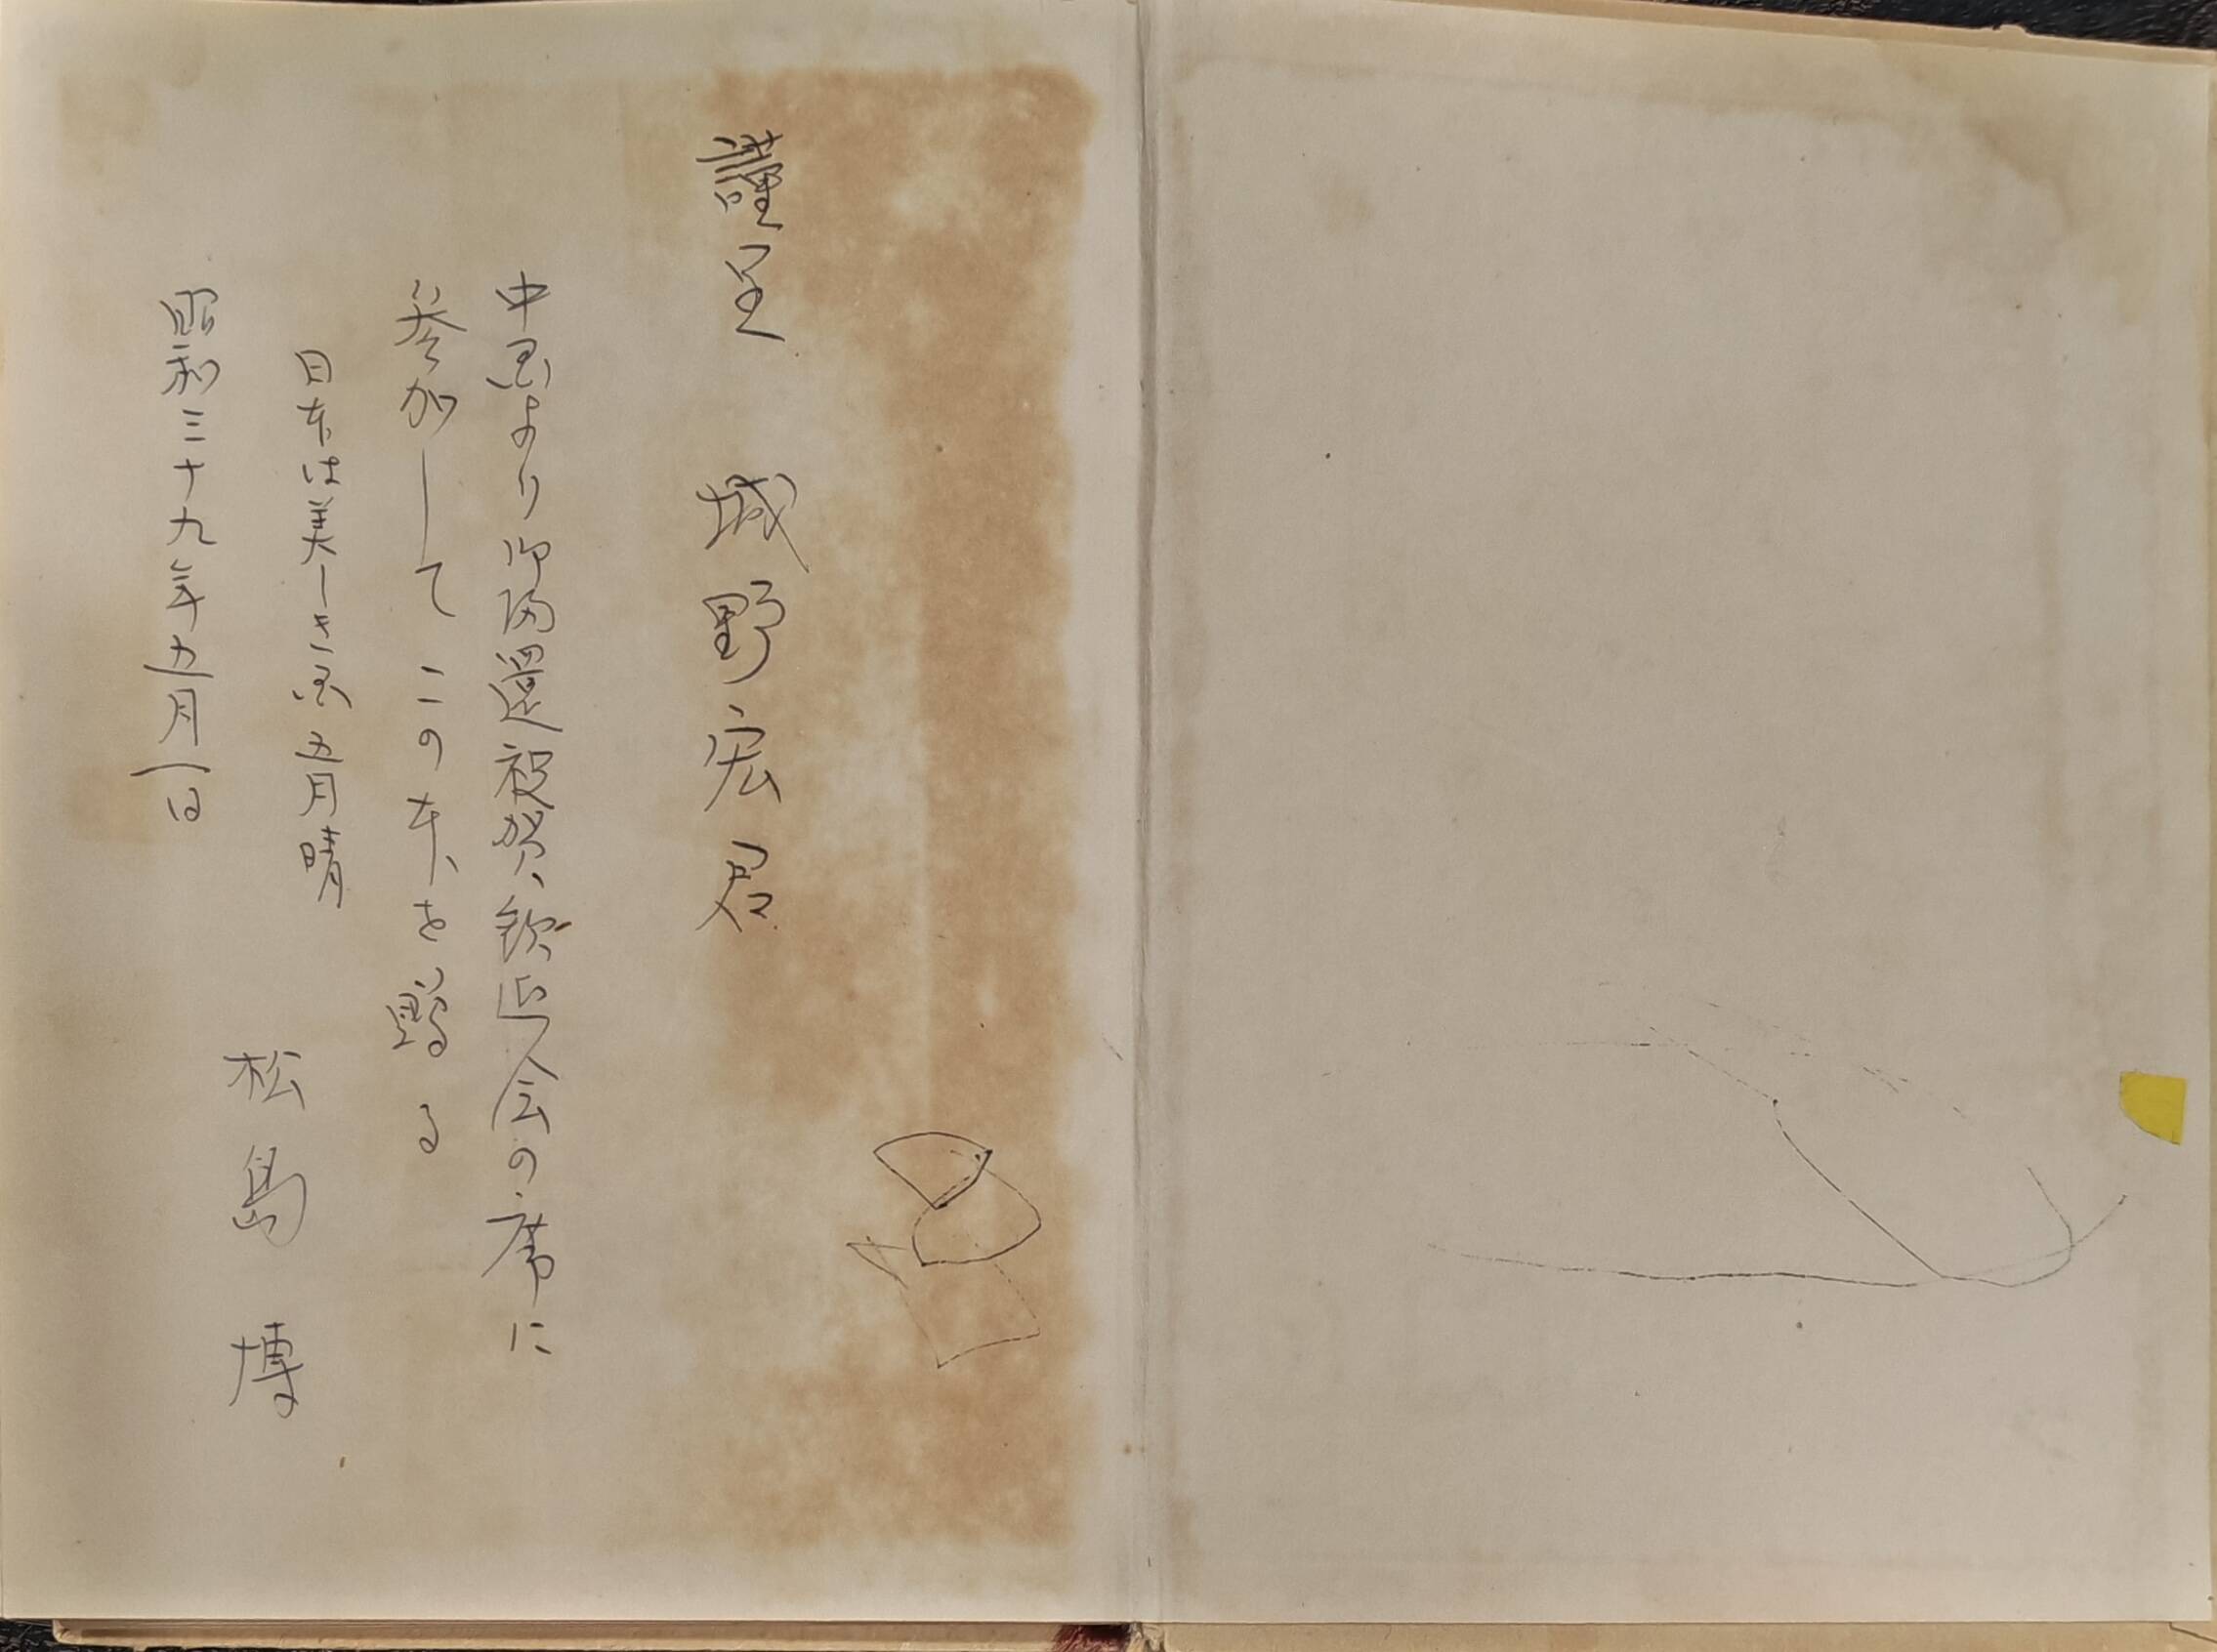 謹呈 城野宏君
中国より御帰還祝賀歓迎会の席に
参加してこの本を贈る
日本は美しき国 五月晴
昭和三十九年五月一日
松島博